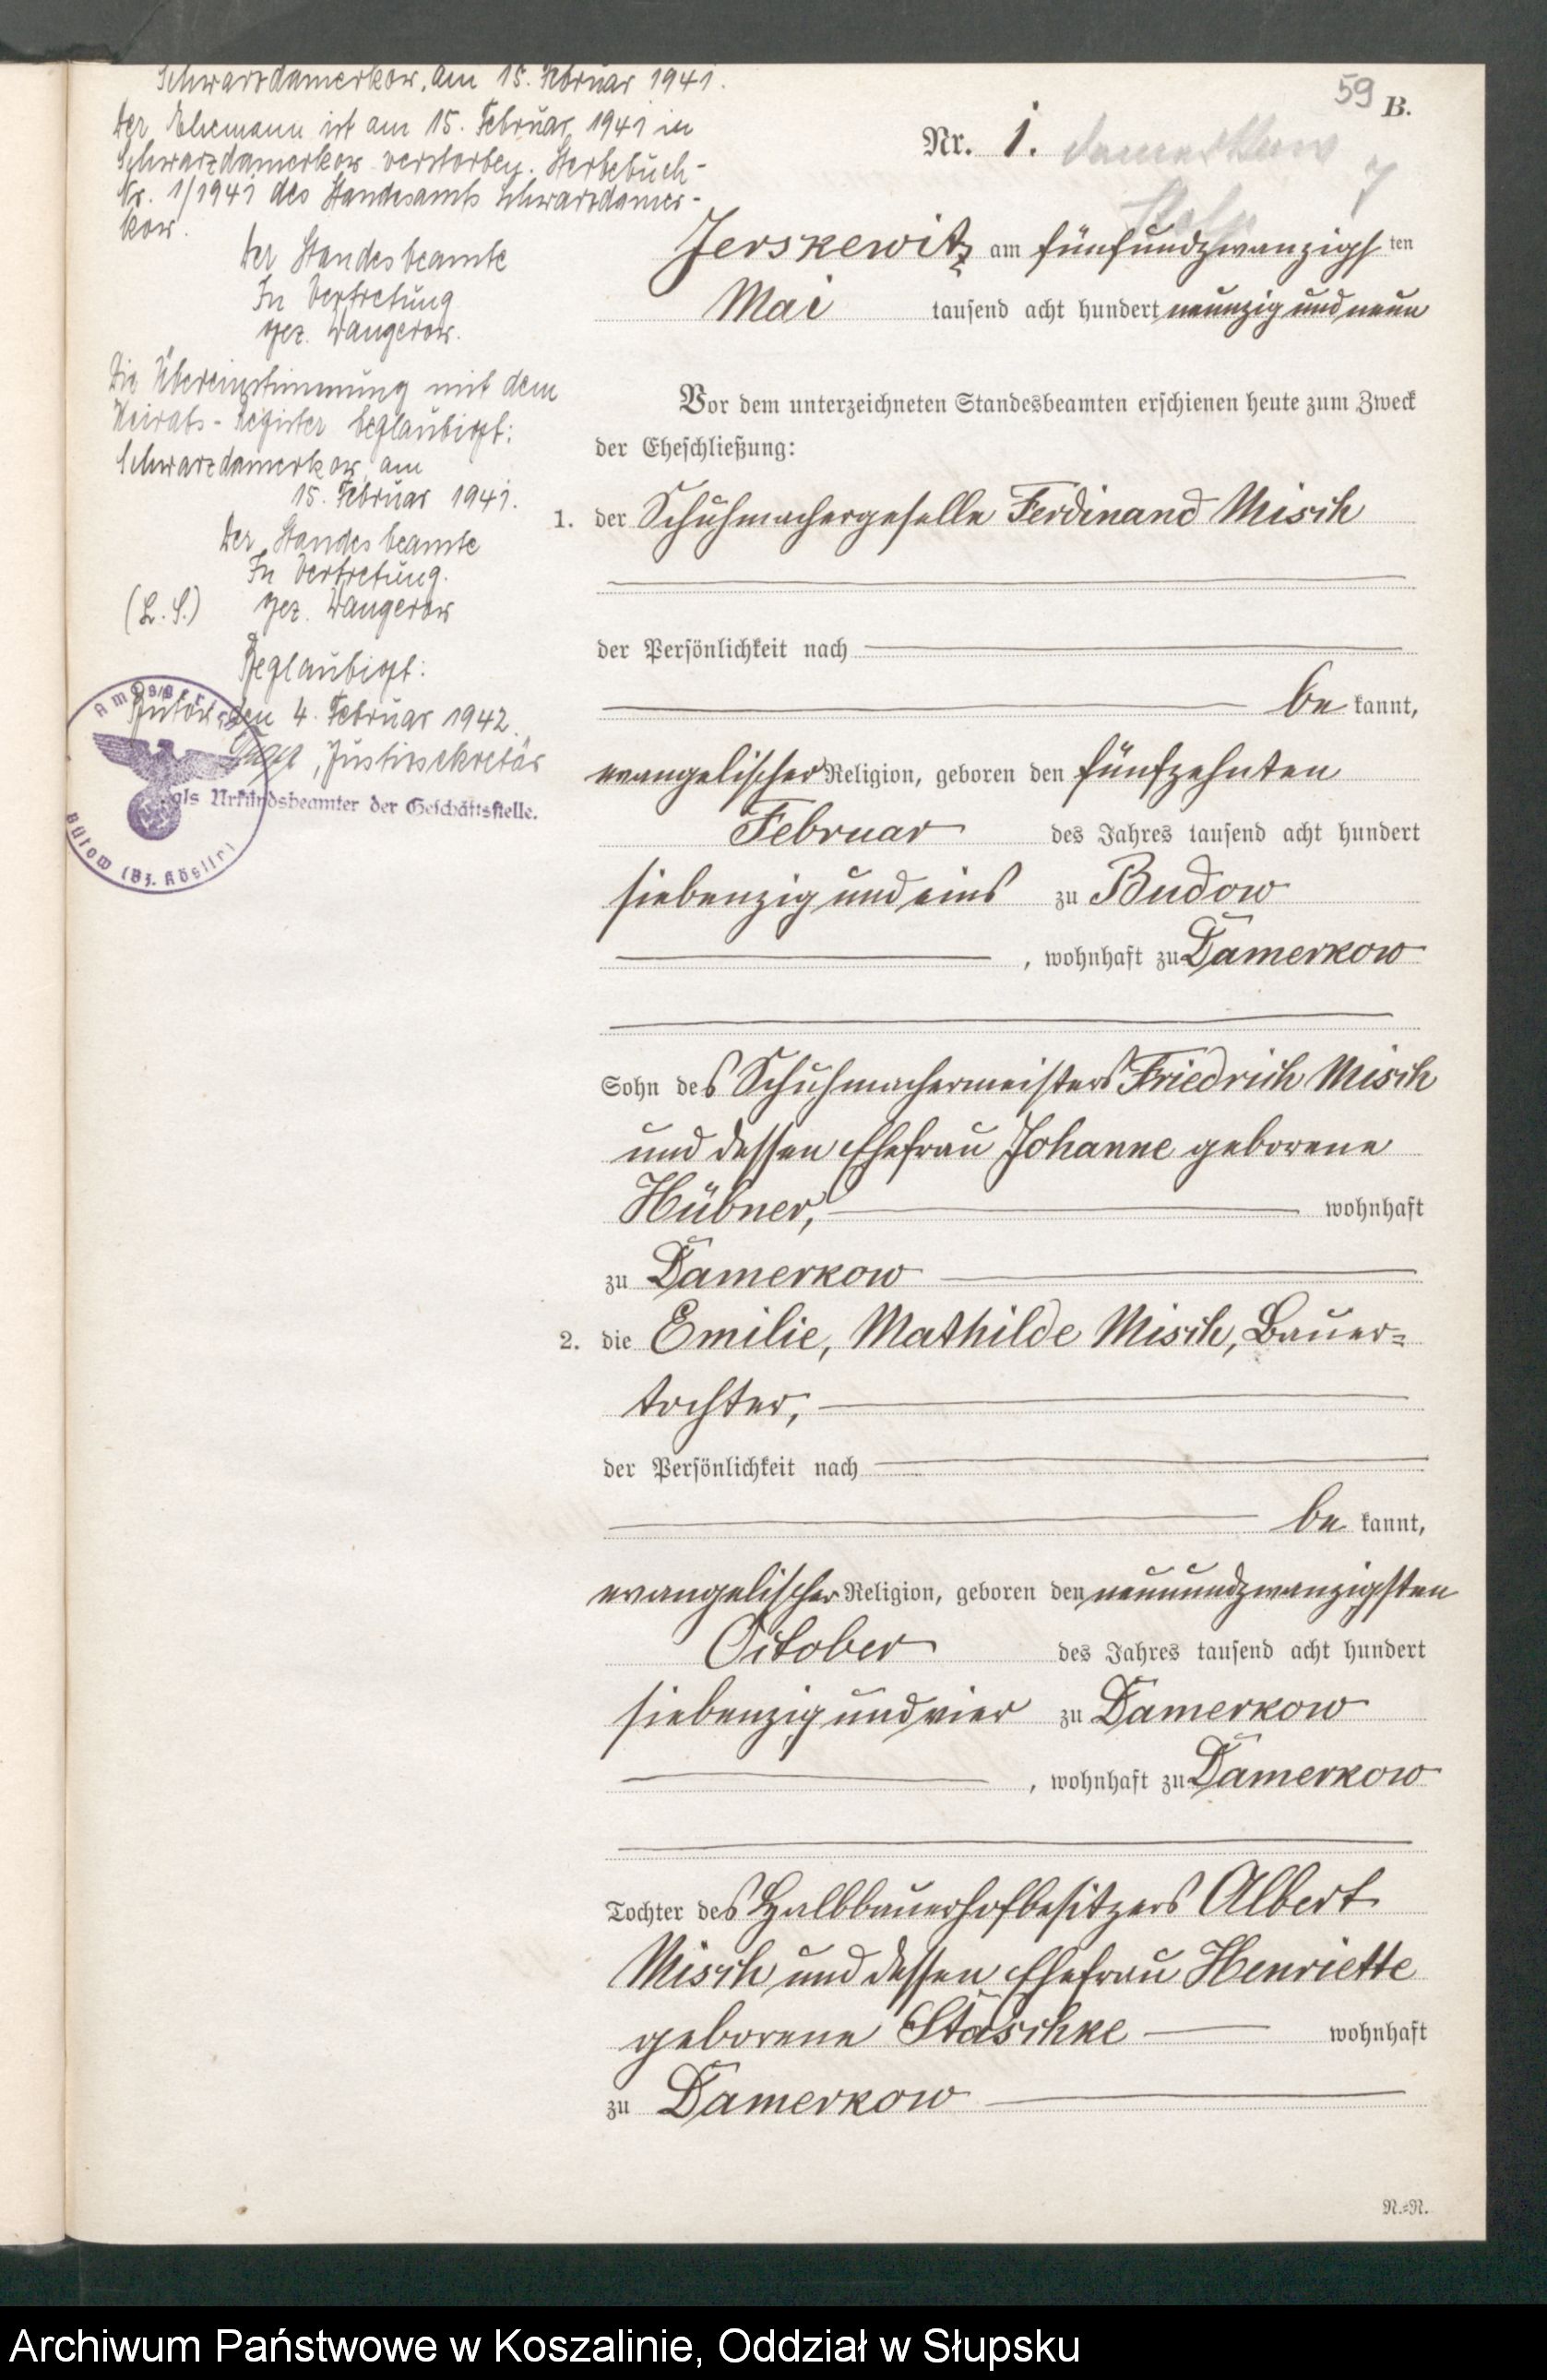 Schwarzdamerkow, am 15. Februar 1941.
Der Ehemann ist am 15. Februar 1941 in
Schwarzdamerkow verstorben. Sterbebuch-
Nr. 1/1941 des Standesamts Schwarzdamer-
kow.
Der Standesbeamte
In Vertretung
gez. Wangerow.
Die Übereinstimmung mit dem
Heirats-Register beglaubigt:
Schwarzdamerkow, am
15. Februar 1941.
Der Standesbeamte
In Vertretung.
(L.S.) gez. Wangerow
Beglaubigt:
Bütow, den 4. Februar 1942.
, Justizsekretär
als Urkundsbeamter der Geschäftsstelle.
Bütow (Bz. Köslin)
59 B.
Nr. 1. Damerkow 7
Jerskewitz am fünfundzwanzigsten
Mai tausend acht hundert neunzig und neun
Vor dem unterzeichneten Standesbeamten erschienen heute zum Zweck
der Eheschließung:
1. der Schuhmachergeselle Ferdinand Misch
der Persönlichkeit nach
be kannt,
evangelischer Religion, geboren den fünfzehnten
Februar des Jahres tausend acht hundert
siebenzig und eins zu Budow
, wohnhaft zu Damerkow
Sohn des Schuhmachermeisters Friedrich Misch
und dessen Ehefrau Johanne geborene
Hübner, wohnhaft
zu Damerkow
2. die Emilie, Mathilde Misch, Bauer=
tochter,
der Persönlichkeit nach
be kannt,
evangelischer Religion, geboren den neunundzwanzigsten
October des Jahres tausend acht hundert
siebenzig und vier zu Damerkow
, wohnhaft zu Damerkow
Tochter des Halbbauerhofbesitzers Albert
Misch und dessen Ehefrau Henriette
geborene Staschke wohnhaft
zu Damerkow
N.=N.
Archiwum Państwowe w Koszalinie, Oddział w Słupsku